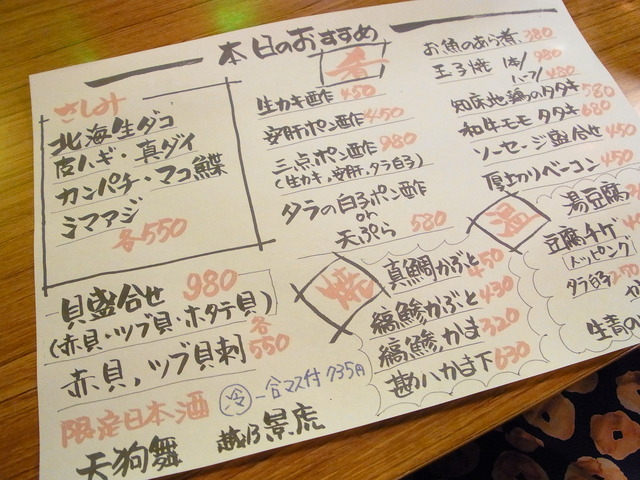 本日のおすすめ
さしみ
北海生ダコ
皮ハギ・真ダイ
カンパチ・マコ鰈
ミマアジ
各550
貝盛合せ 980
(赤貝・ツブ貝・ホタテ貝)
赤貝,ツブ貝刺 各550
限定日本酒 冷 一合マス付 735円
天狗舞 越乃景虎
生カキ酢 450
安肝ポン酢 450
三点ポン酢 980
(生カキ,安肝,タラ白子)
タラの白子ポン酢
or
天ぷら 580
焼
真鯛かぶと 450
縞鯵かぶと 430
縞鯵かま 320
勘ハカま下 630
お魚のあら煮 380
玉子焼 1本/ 980
ハーフ/ 480
知床地鶏のタタキ 580
和牛モモタタキ 680
ソーセージ盛合せ 450
厚切りベーコン 450
温
湯豆腐
豆腐チゲ
トッピング
タラ白子